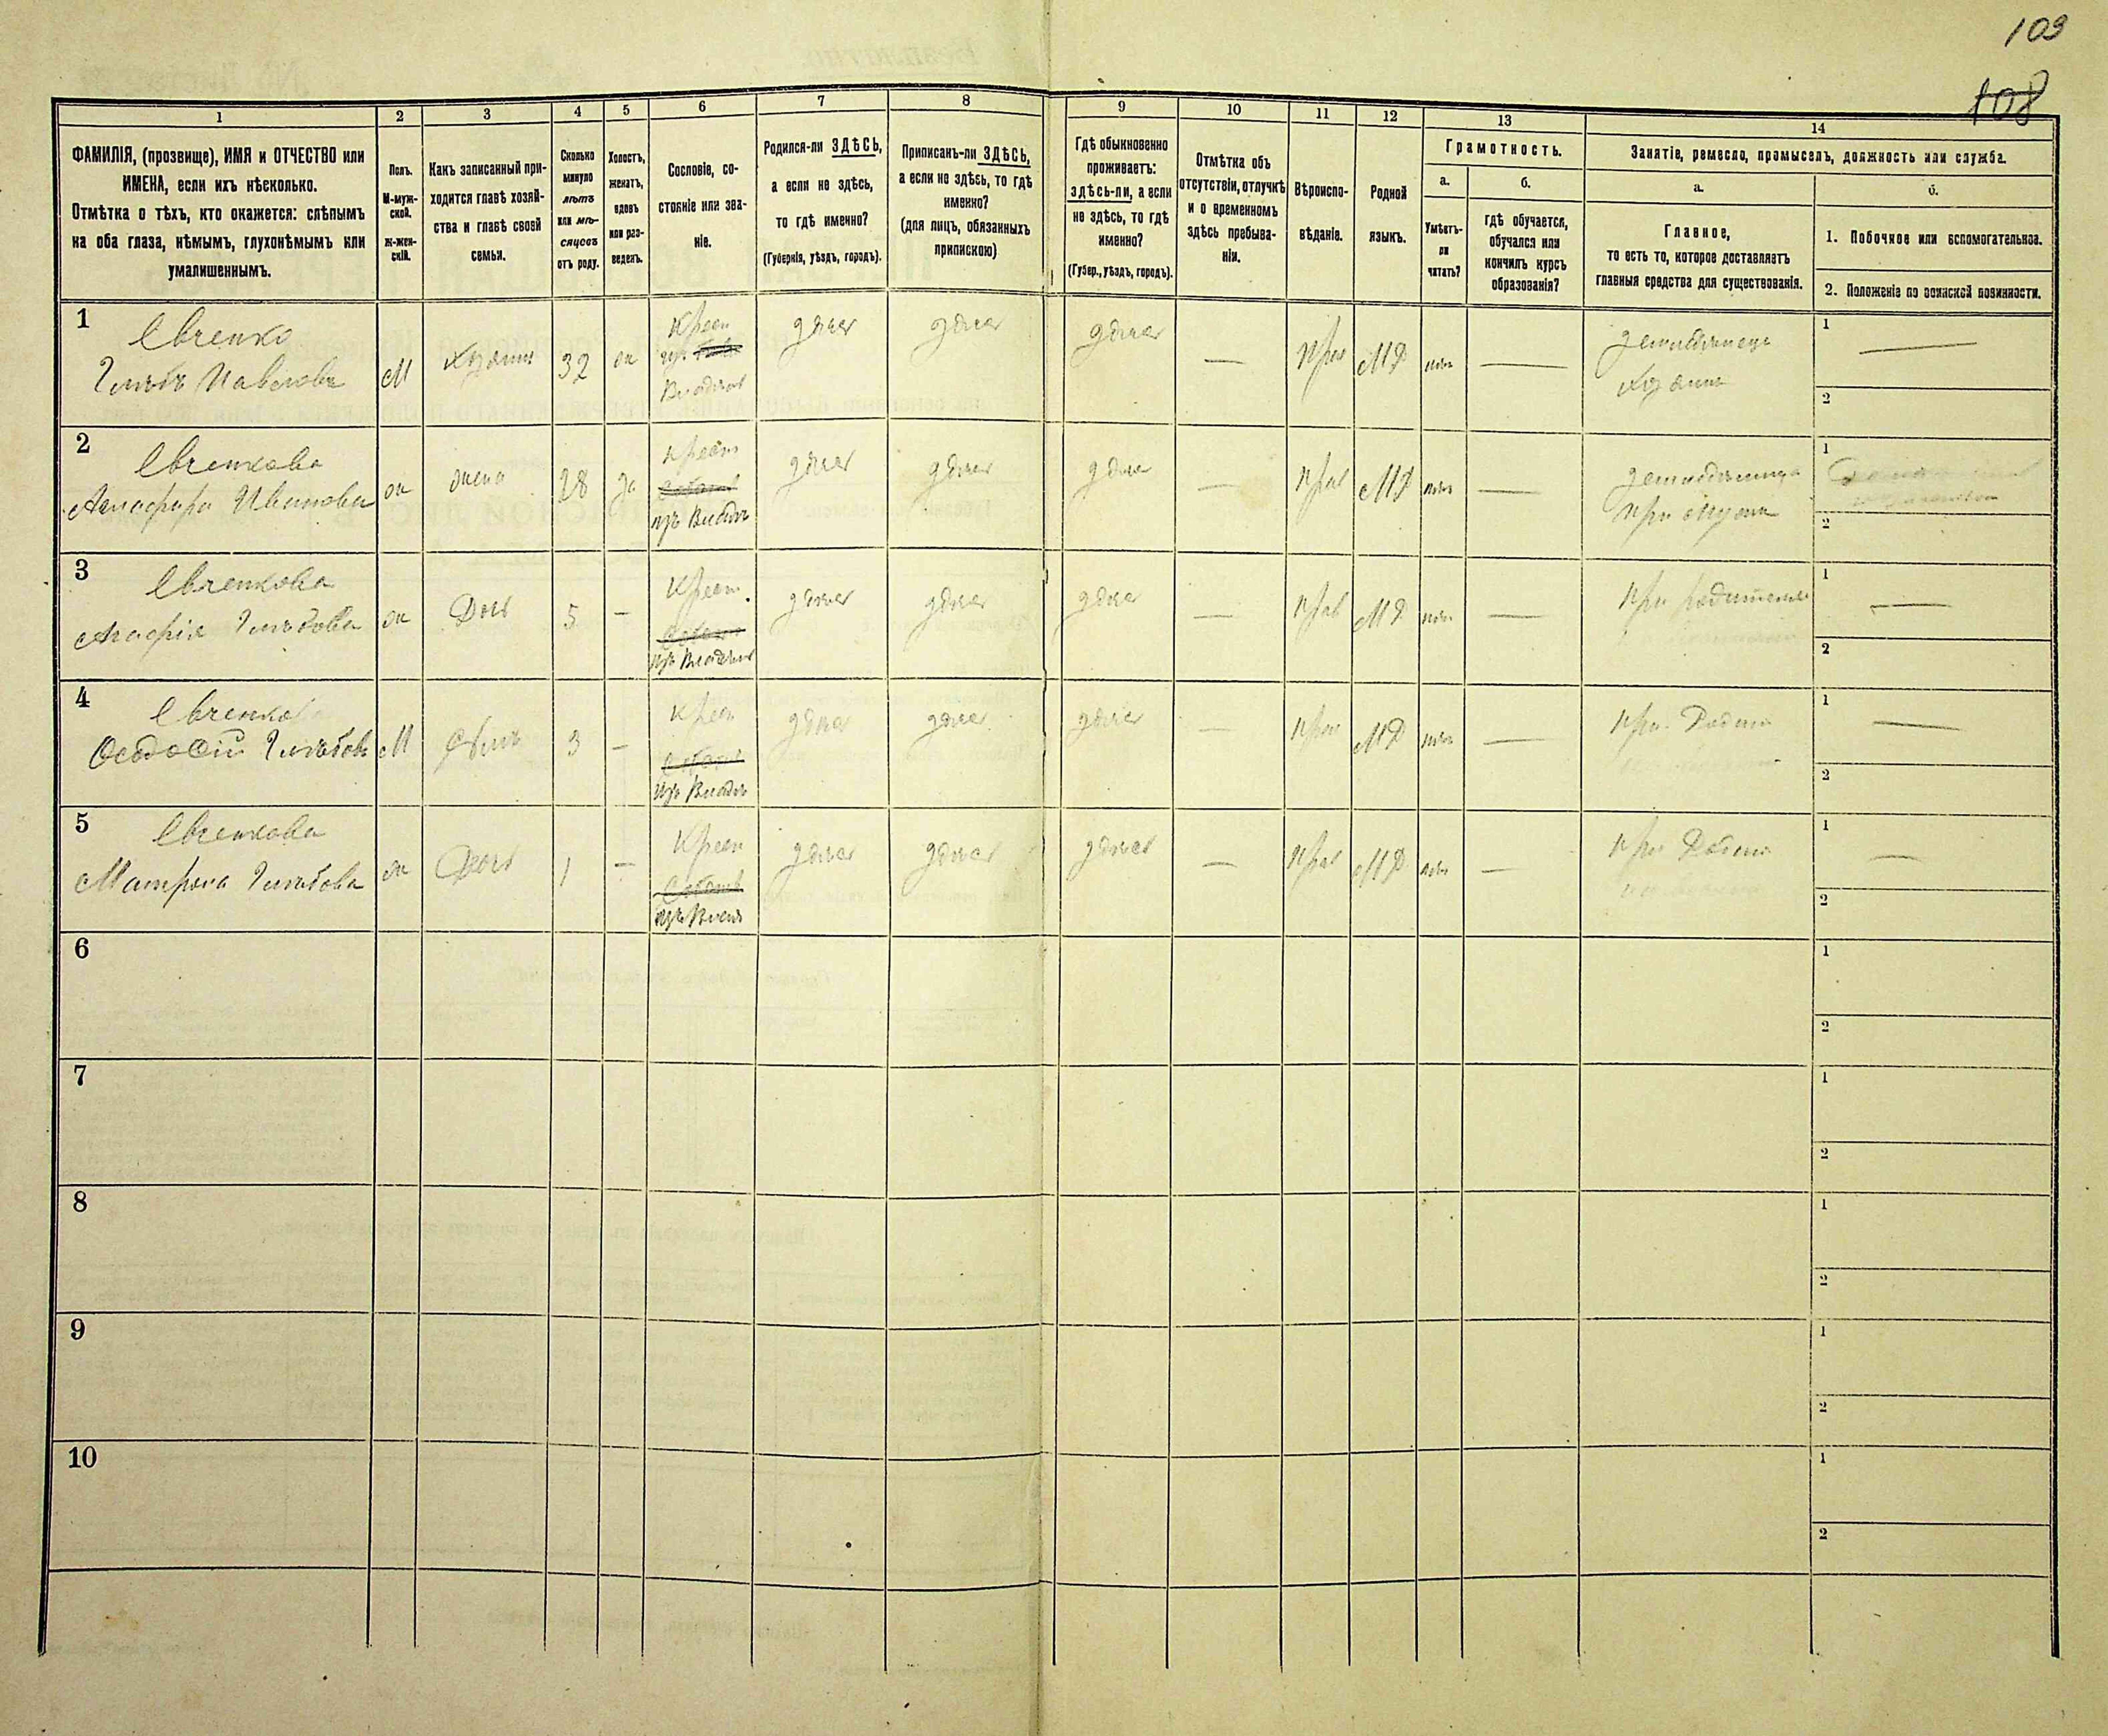 103
108
1
2
3
4
5
6
7
8
9
10
11
12
13
14
ФАМИЛІЯ, (прозвище), ИМЯ и ОТЧЕСТВО или
ИМЕНА, если ихъ нѣсколько.
Отмѣтка о тѣхъ, кто окажется: слѣпымъ
на оба глаза, нѣмымъ, глухонѣмымъ или
умалишеннымъ.
Полъ.
М-муж-
ской.
Ж-жен-
скій.
Какъ записанный при-
ходится главѣ хозяй-
ства и главѣ своей
семьи.
Сколько
минуло
лѣтъ
или мѣ-
сяцевъ
отъ роду.
Холостъ,
женатъ,
вдовъ
или раз-
веденъ.
Сословіе, со-
стояніе или зва-
ніе.
Родился-ли ЗДѢСЬ,
а если не здѣсь,
то гдѣ именно?
(Губернія, уѣздъ, городъ).
Приписанъ-ли ЗДѢСЬ,
а если не здѣсь, то гдѣ
именно?
(для лицъ, обязанныхъ
припискою)
Гдѣ обыкновенно
проживаетъ:
здѣсь-ли, а если
не здѣсь, то гдѣ
именно?
(Губер., уѣздъ, городъ).
Отмѣтка объ
отсутствіи, отлучкѣ
и о временномъ
здѣсь пребыва-
ніи.
Вѣроиспо-
вѣданіе.
Родной
языкъ.
Грамотность.
а.
Умѣетъ-
ли
читать?
б.
гдѣ обучается,
обучался или
кончилъ курсъ
образованія?
Занятіе, ремесло, промыселъ, должность или служба.
а.
Главное,
то есть то, которое доставляетъ
главныя средства для существованія.
б.
1. Побочное или вспомогательное.
2. Положеніе по воинской повинности.
1
Евченко
Глѣбъ Павловъ
М
Хозяинъ
32
ж
Крест
изъ
Владѣл
здѣсь
здѣсь
здѣсь
—
Прав
МР
нѣтъ
—
земледѣлецъ
хозяинъ
1
—
2
2
Евченкова
Агафира Иванова
ж
жена
28
за
Крест
изъ Владѣл
здѣсь
здѣсь
здѣсь
—
Прав
МР
нѣтъ
—
при мужѣ
1
2
3
Евченкова
Агафія Глѣбова
ж
Дочь
5
—
Крест.
изъ Владѣл
здѣсь
здѣсь
здѣсь
—
Прав
МР
нѣтъ
—
При родителе
1
—
2
4
Евченко
Ѳеодосій Глѣбовъ
М
Сынъ
3
—
Крест
изъ Владѣл
здѣсь
здѣсь
здѣсь
—
Прав
МР
нѣтъ
—
При Родит
1
—
2
5
Евченкова
Матрена Глѣбова
ж
Дочь
1
—
Крест
изъ Влад
здѣсь
здѣсь
здѣсь
—
Прав
МР
нѣтъ
—
при Родит
1
—
2
6
1
2
7
1
2
8
1
2
9
1
2
10
1
2